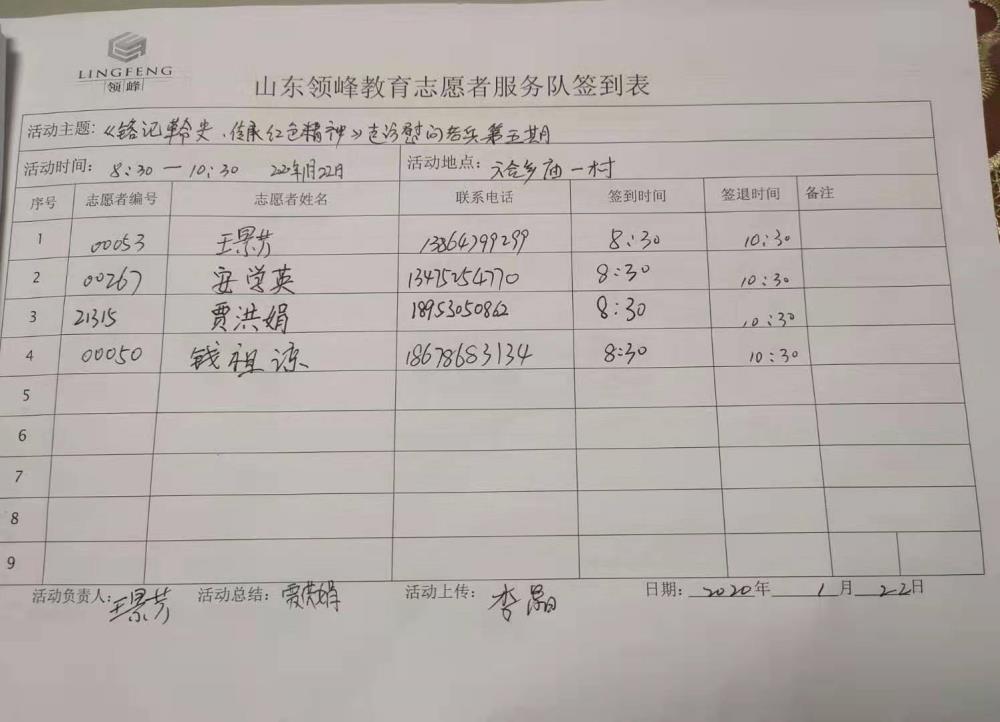 LINGFENG
领峰
山东领峰教育志愿者服务队签到表
活动主题:《铭记革命史、传承红色精神》走访慰问老兵第五期
活动时间: 8:30 — 10:30 2020年1月22日 活动地点: 六合乡庙一村
序号 志愿者编号 志愿者姓名 联系电话 签到时间 签退时间 备注
1 00053 王景芳 13864799299 8:30 10:30
2 00267 安学英 13475254770 8:30 10:30
3 21315 贾洪娟 18953050862 8:30 10:30
4 00050 钱祖谅 18678683134 8:30 10:30
5
6
7
8
9
活动负责人: 王景芳 活动总结: 贾洪娟 活动上传: 李晶 日期: 2020年 1月 22日